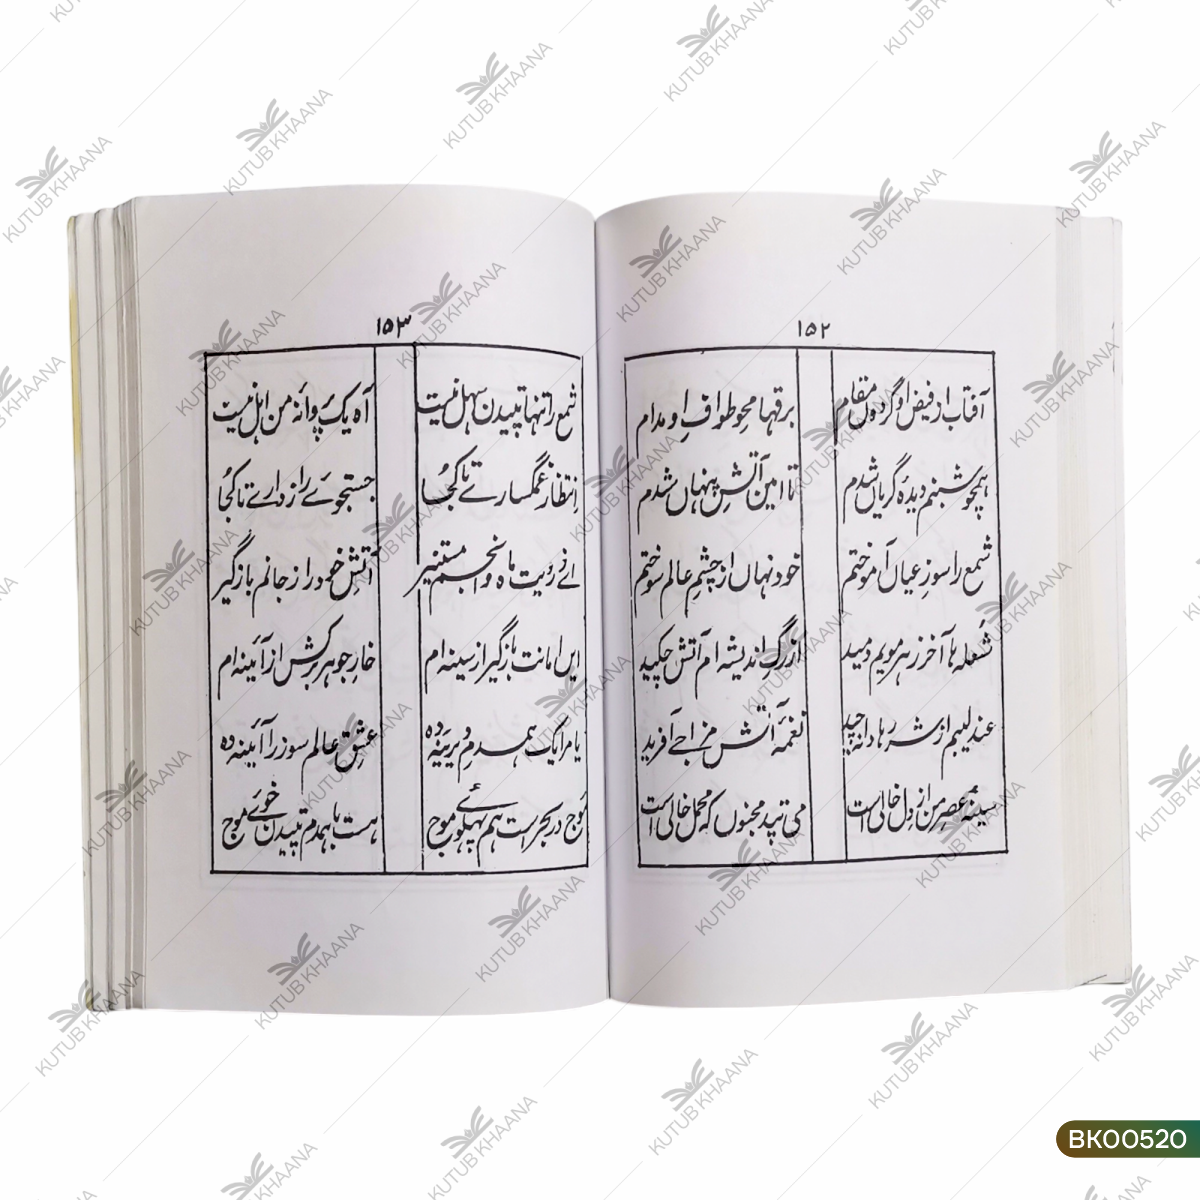 ۱۵۲
آفتاب از فیض او گردوں مقام برقہا محوِ طوافِ او مدام
ہمچو شبنم دیدۂ گریاں شدم تا امینِ آتشِ پنہاں شدم
شمع را سوزِ عیاں آموختم خود نہاں از چشمِ عالم سوختم
شعلہ ہا آخر ز ہر مویم دمید از رگِ اندیشہ ام آتش چکید
عندلیبم از شررہا دانہ چید نغمۂ آتش مزاجے آفرید
سینۂ عصرِ من از دل خالی است می تپد مجنوں کہ محمل خالی است
۱۵۳
شمع را تنہا تپیدن سہل نیست آہ یک پروانۂ من اہل نیست
انتظارِ غمگسارے تا کجا جستجوئے رازدارے تا کجا
اے ز رویت ماہ و انجم مستنیر آتشِ خود را ز جانم باز گیر
ایں امانت باز گیر از سینہ ام خارِ جوہر برکش از آئینہ ام
یا مرا یک ہمدمِ دیرینہ دہ عشقِ عالم سوز را آئینہ دہ
موج در بحر است ہم پہلوئے موج ہست با ہمدم تپیدن خوئے موج
KUTUB KHAANA
BK00520